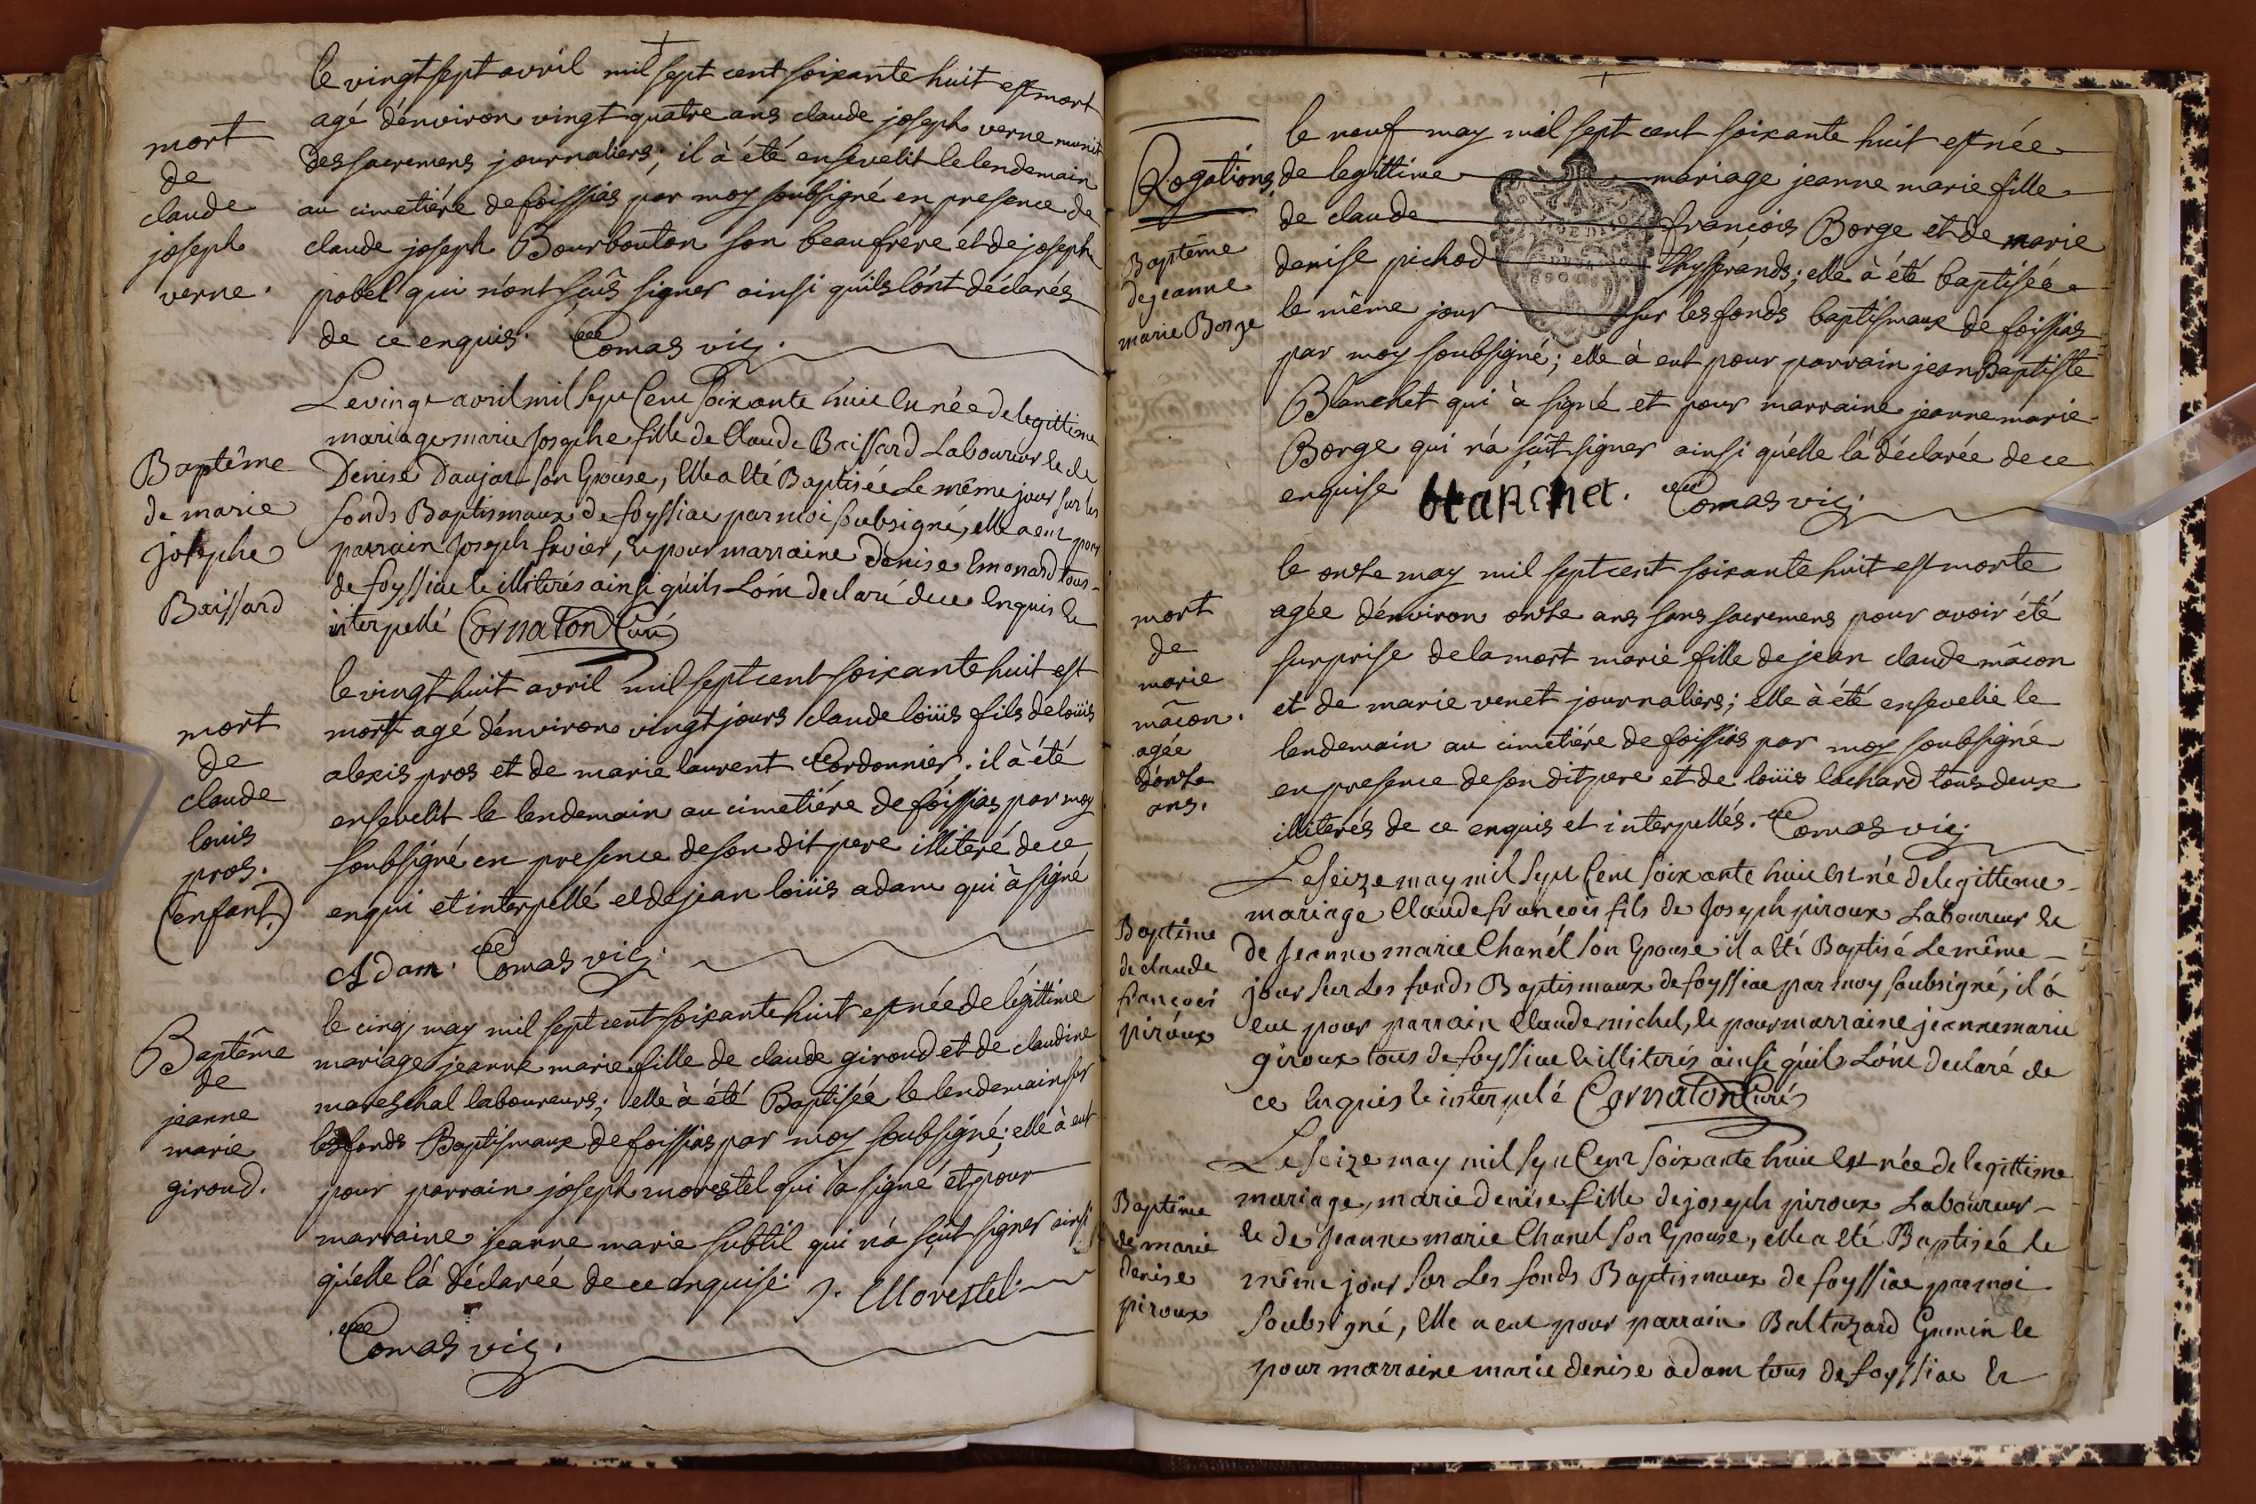 le vingt sept avril mil sept cent soixante huit est mort
agé d'environ vingt quatre ans claude joseph verne munit
des sacremens journaliers; il à été ensevelit le lendemain
au cimetiére de foissias par moy soubsigné en presence de
claude joseph Bourbouton son beaufrere et de joseph
pobel qui n'ont sçûs signer ainsi quils l'ont déclarés
de ce enquis. Comas vic.
mort
de
claude
joseph
verne.
Le vingt avril mil sept Cent soixante huit Est née de legittime
mariage marie Josephe fille de Claude Baissard Laboureur Et de
Denise Daujat son Epouse, Elle a Eté Baptisée Le même jour sur les
fonds Baptismaux de foyssiac par moi soubsigné, elle a eut pour
parrain Joseph frvier, Et pour marraine Denise Emonard tous
de foyssiac Et illiterés ainsi qu'ils L'ont declaré de ce Enquis Et
interpellé Cornaton Curé
Baptême
de marie
josephe
Baissard
le vingt huit avril mil sept cent soixante huit est
mort agé d'environ vingt jours claude loüis fils de loüis
alexis pros et de marie laurent Cordonnier; il à été
ensevelit le lendemain au cimetiére de foissias par moy
soubsigné en presence de son dit pere illiteré de ce
enqui et interpellé et de jean loüis adam qui à signé
Adam. Comas vic.
mort
de
claude
louis
pros.
(enfant.)
le cinq may mil sept cent soixante huit est née de légittime
mariage jeanne marie fille de claude giroud et de claudine
mareschal laboureurs; elle à été Baptisée le lendemain sur
les fonds Baptismaux de foissias par moy soubsigné; elle à eut
pour parrain joseph morestel qui à signé et pour
marraine jeanne marie subtil qui n'à sçût signer ainsi
qu'elle l'à déclarée de ce enquise. J. Morestel
Comas vic.
Baptême
de
jeanne
marie
giroud.
le neuf may mil sept cent soixante huit est née
de legittime mariage jeanne marie fille
de claude françois Borge et de marie
denise pichod thysserands; elle à été baptisée
le même jour sur les fonds baptismaux de foissias
par moy soubsigné; elle à eut pour parrain jean Baptiste
Blanchet qui à signé et pour marraine jeanne marie
Borge qui n'a sçût signer ainsi qu'elle l'à déclarée de ce
enquise blanchet. Comas vic.
Rogations
Baptême
de jeanne
marie Borge
le onse may mil sept cent soixante huit est morte
agée d'environ onse ans sans sacremens pour avoir été
surprise de la mort marie fille de jean claude mâcon
et de marie venet journaliers; elle à été ensevelie le
lendemain au cimetiére de foissias par moy soubsigné
en presence de son dit pere et de loüis lachard tous deux
illiterés de ce enquis et interpellés. Comas vic.
mort
de
marie
mâcon.
agée
d'onse
ans.
Le seize may mil sept Cent soixante huit Est né de legittime
mariage Claude françois fils de Joseph piroux Laboureur Et
de Jeanne marie Chanél son Epouse il a Eté Baptisé Le même
jour sur Les fonds Baptismaux de foyssiac par moy soubsigné, il à
eut pour parrain Claude michel, Et pour marraine jeanne marie
giroux tous de foyssiac Et illiterés ainsi qu'il L'ont declaré de
ce Enquis Et interpelé Cornaton Curé
Baptême
de claude
françois
piroux
Le seize may mil sept Cent soixante huit Est née de legittime
mariage, marie denise fille de joseph piroux Laboureur
Et de Jeanne marie Chanel son Epouse, elle a Eté Baptisée Le
même jour sur Les fonds Baptismaux de foyssiac par moi
soubsigné, Elle a eut pour parrain Baltazard Gunin Et
pour marraine marie denise adam tous de foyssiac Et
Baptême
de marie
denise
piroux